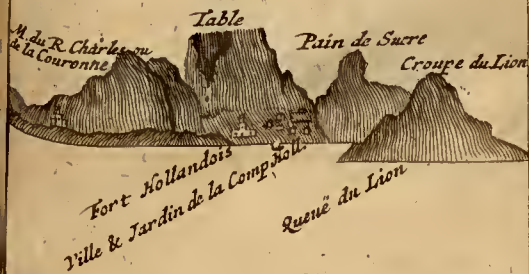 Table
M. du R. Charles ou
de la Couronne
Pain de Sucre
Croupe du Lion
Fort Hollandois
Ville & Jardin de la Comp Holl.
Queuë du Lion